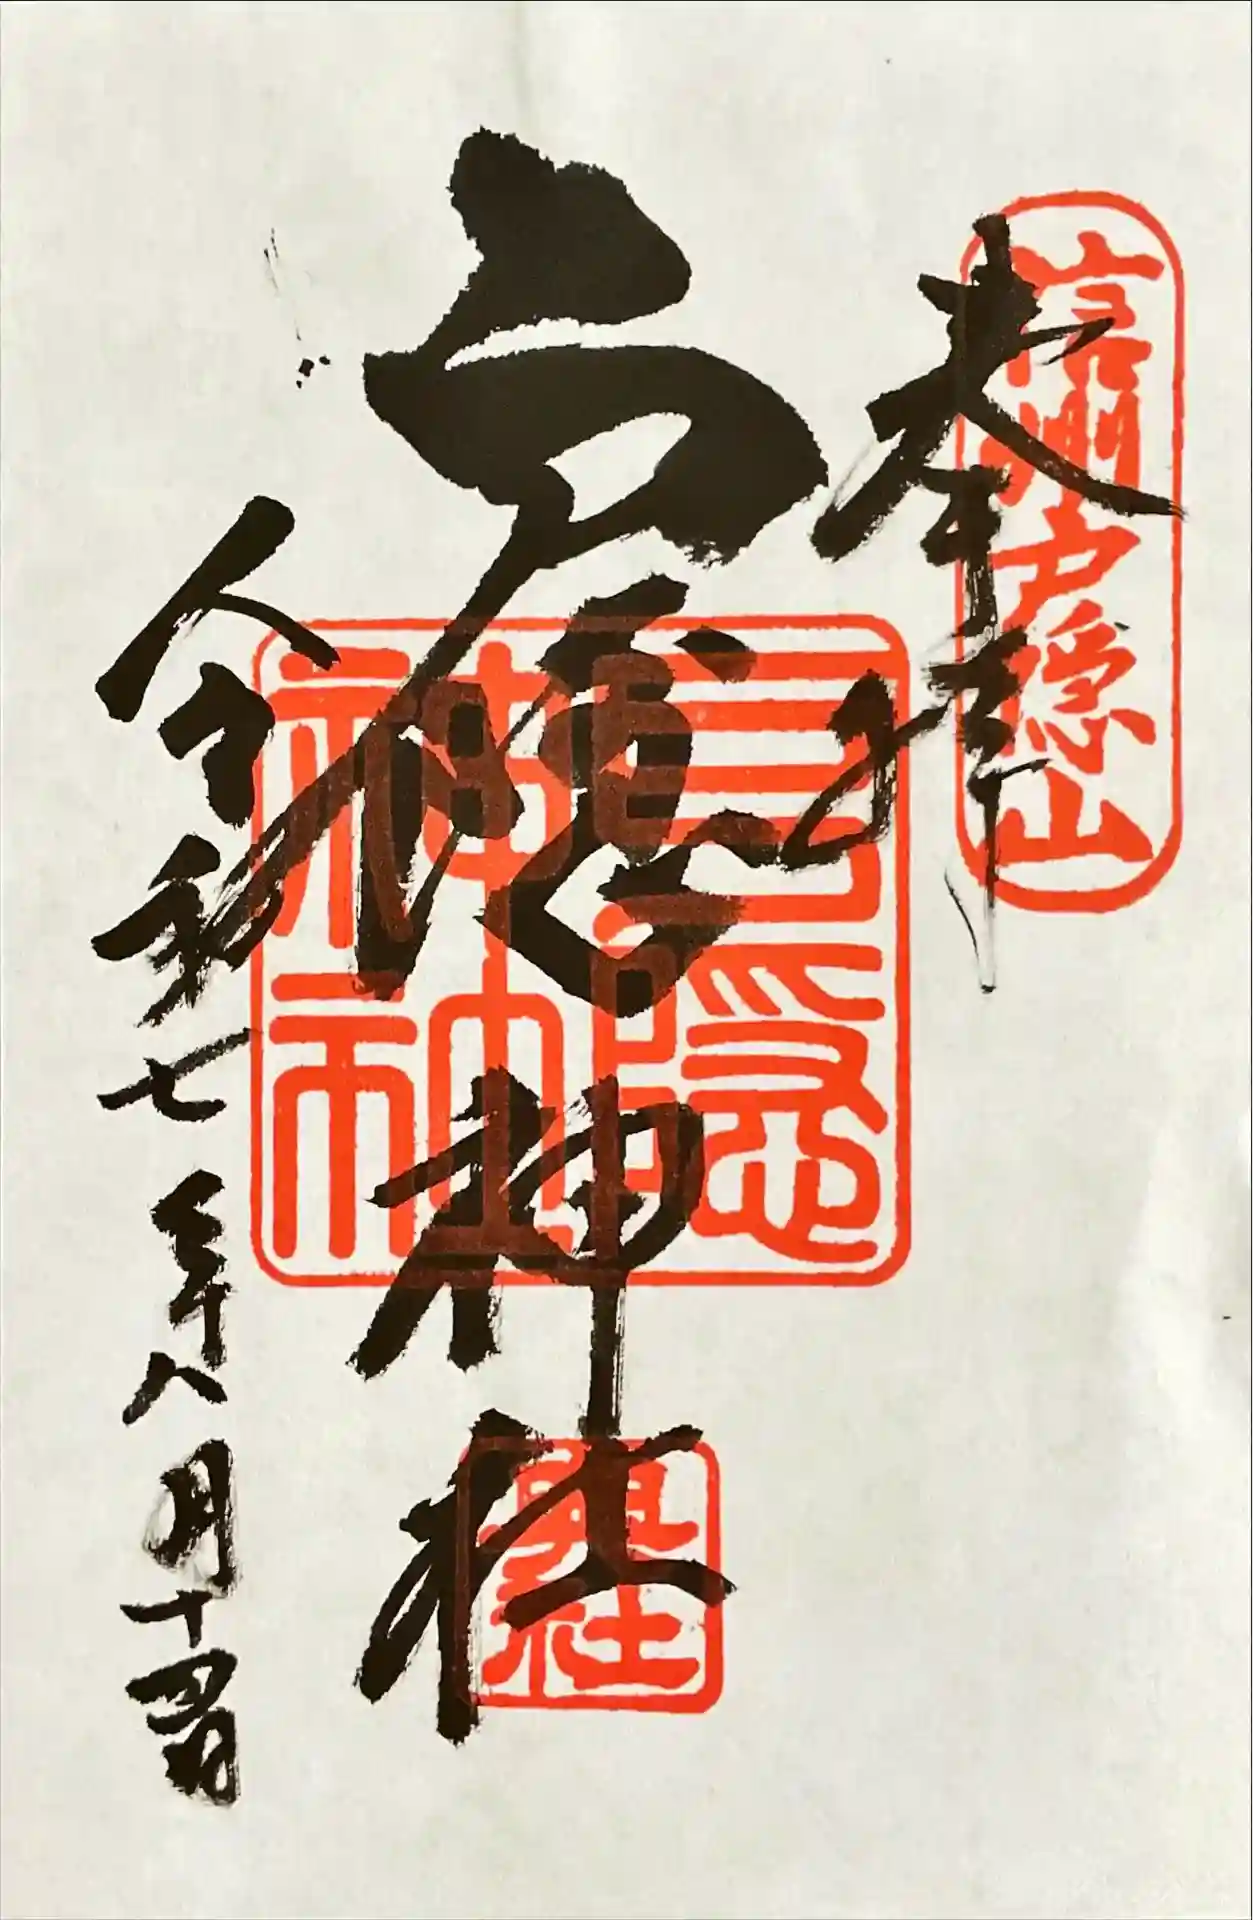 信州戸隠山
奉拝
戸隠神社
戸隠神社
奥社
令和七年八月十日